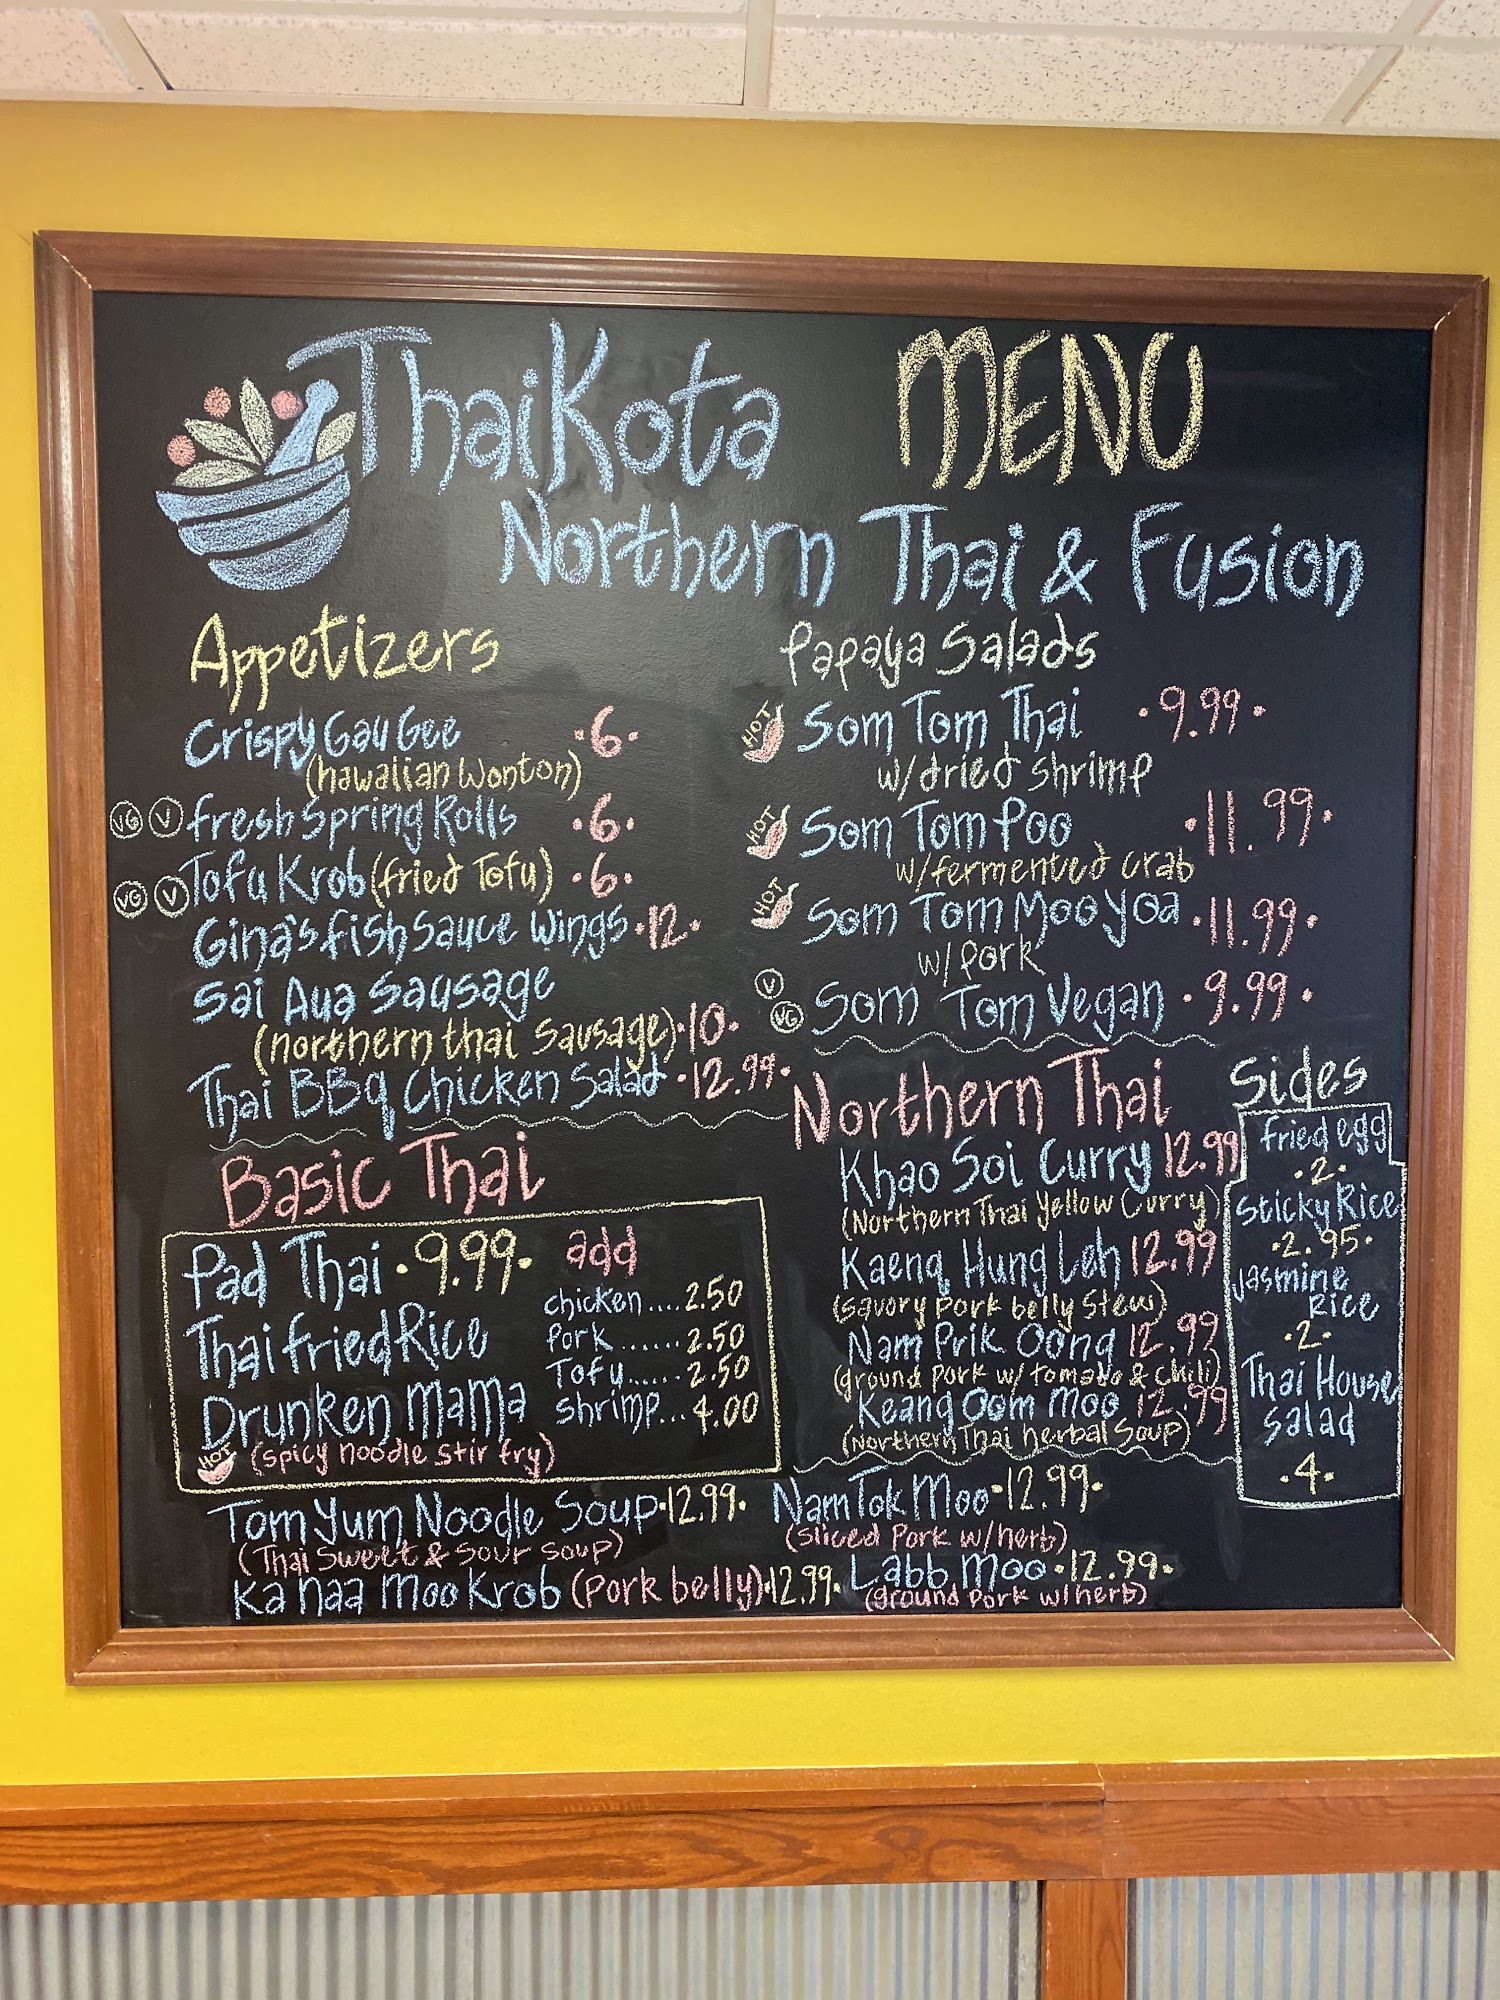 ThaiKota MENU
Northern Thai & Fusion
Appetizers
Crispy Gau Gee ·6·
(hawaiian Wonton)
VG V fresh Spring Rolls ·6·
VG V Tofu Krob (fried Tofu) ·6·
Gina's fish Sauce Wings ·12·
Sai Aua Sausage
(northern thai Sausage) ·10·
Thai BBq Chicken Salad ·12.99·
Basic Thai
Pad Thai ·9.99·
Thai fried Rice
Drunken MaMa
HOT (spicy noodle stir fry)
add
chicken....2.50
Pork.......2.50
Tofu......2.50
shrimp...4.00
Tom Yum Noodle Soup ·12.99·
(Thai Sweet & Sour soup)
Ka Naa Moo Krob (Pork belly) ·12.99·
Papaya Salads
HOT Som Tom Thai ·9.99·
w/dried shrimp
HOT Som Tom Poo ·11.99·
w/fermented crab
HOT Som Tom Moo Yoa ·11.99·
w/Pork
V VG Som Tom Vegan ·9.99·
Northern Thai
Khao Soi Curry 12.99
(Northern Thai Yellow Curry)
Kaeng Hung Leh 12.99
(Savory Pork belly Stew)
Nam Prik Oong 12.99
(ground Pork w/ tomato & chili)
Keang Oom Moo 12.99
(Northern Thai herbal Soup)
Nam Tok Moo ·12.99·
(Sliced Pork w/herb)
Labb Moo ·12.99·
(ground Pork w/herb)
Sides
fried egg
·2·
Sticky Rice
·2.95·
Jasmine
Rice
·2·
Thai House
Salad
·4·